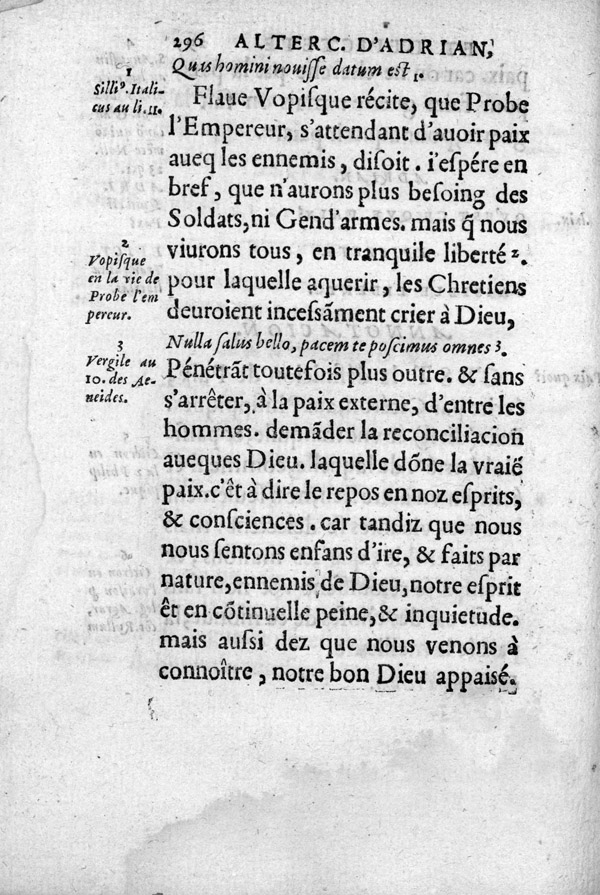 296 ALTERC. D'ADRIAN,
Quis homini nouisse datum est 1.
1
Silli⁹. Itali-
cus au li. 11.
Flaue Vopisque récite, que Probe
l'Empereur, s'attendant d'auoir paix
aueq les ennemis, disoit. i'espére en
bref, que n'aurons plus besoing des
Soldats, ni Gend'armes. mais q̃ nous
viurons tous, en tranquile liberté 2.
2
Vopisque
en la vie de
Probe l'em
pereur.
pour laquelle aquerir, les Chretiens
deuroient incessãment crier à Dieu,
Nulla salus bello, pacem te poscimus omnes 3.
3
Vergile au
10. des Ae-
neides.
Pénétrãt toutefois plus outre. & sans
s'arrêter, à la paix externe, d'entre les
hommes. demãder la reconciliacion
aueques Dieu. laquelle dõne la vraië
paix. c'êt à dire le repos en noz esprits,
& consciences. car tandiz que nous
nous sentons enfans d'ire, & faits par
nature, ennemis de Dieu, notre esprit
êt en cõtinuelle peine, & inquietude.
mais aussi dez que nous venons à
connoître, notre bon Dieu appaisé.